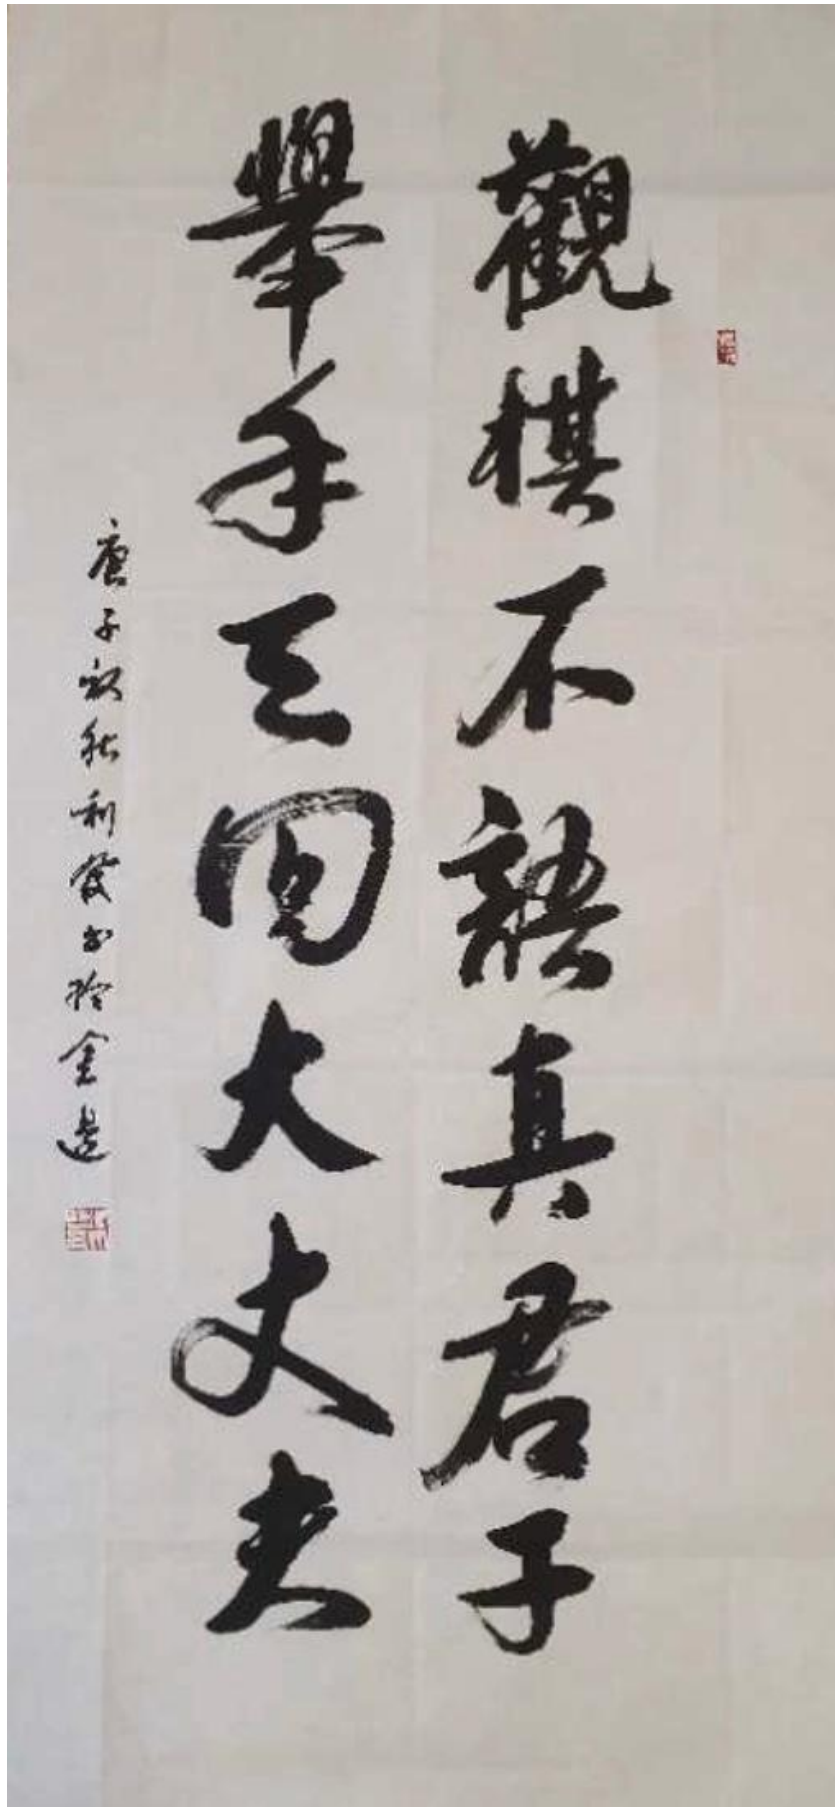 觀棋不語真君子
舉手无回大丈夫
庚子初秋利發书於金邊